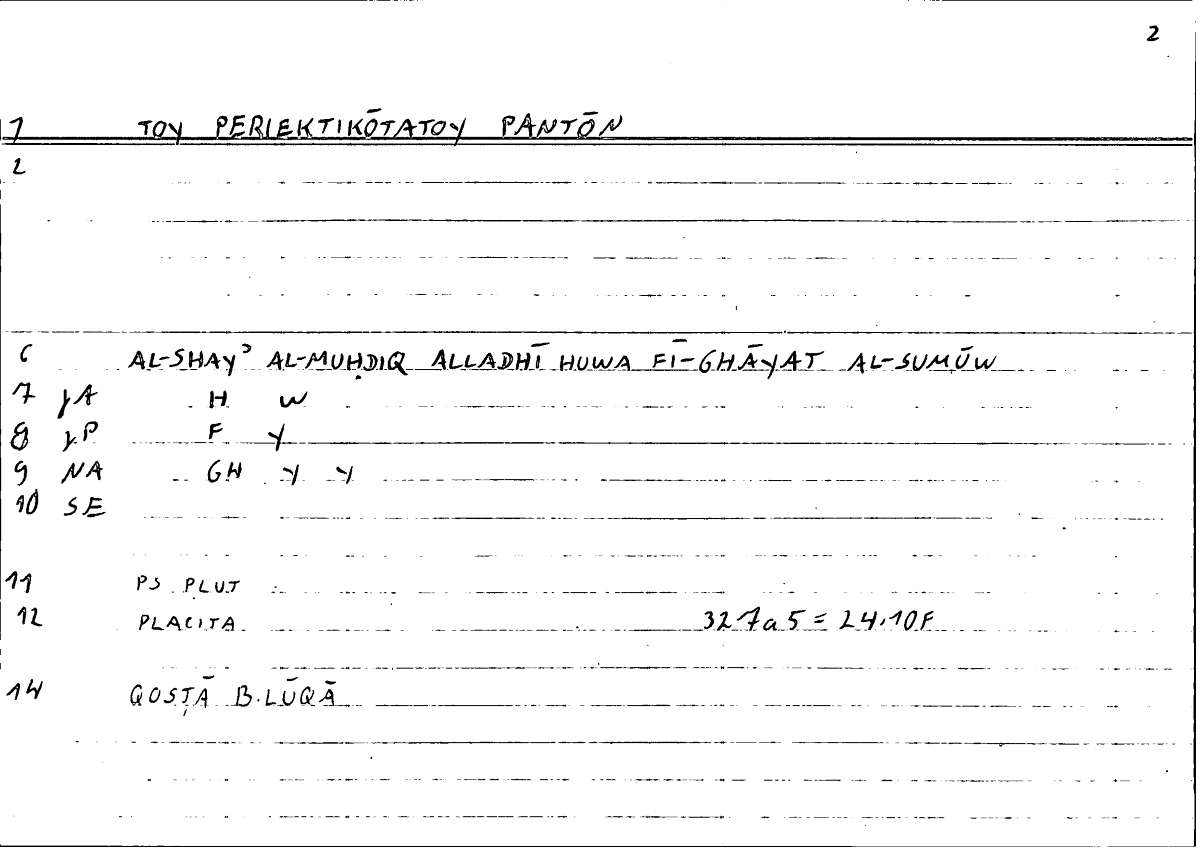 2
1 TOY PERIEKTIKŌTATOY PANTŌN
2
6 AL-SHAYʾ AL-MUḤDIQ ALLADHĪ HUWA FĪ-GHĀYAT AL-SUMŪW
7 JA H W
8 JP F Y
9 NA GH Y Y
10 SE
11 PS PLUT
12 PLACITA 327a5 = 24.10F
14 QOSṬĀ B.LŪQĀ